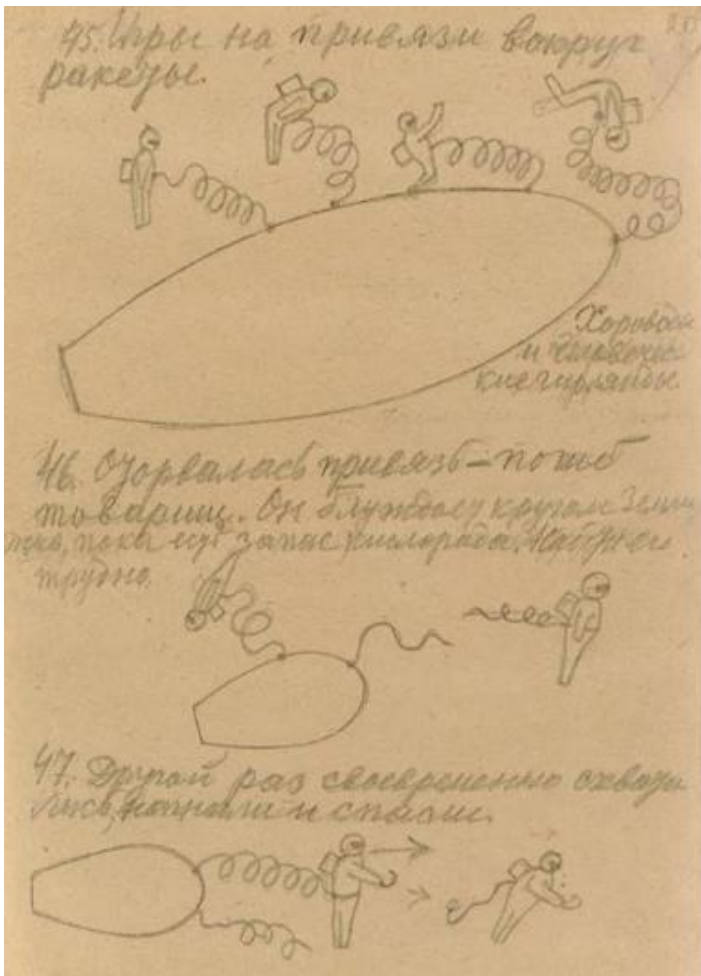 45. Игры на привязи вокруг
ракеты.
Хороводы
и человечес
кие гирлянды.
46. Оторвалась привязь – погиб
товарищ. Он блуждает кругом Земли
пока запас кислорода. Найти
трудно.
47. Другой раз своевременно схвати
лись, нагнали и спасли.